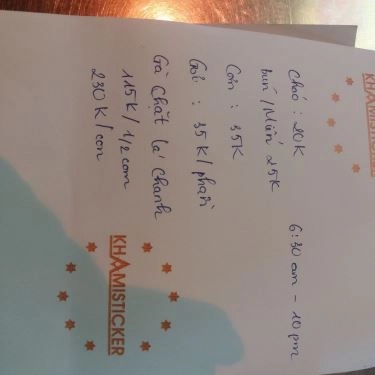 KHAMISTICKER
6:30 am – 10 pm
Cháo : 20K
bún / Miến 25K
Cơm : 35K
Gỏi : 35K / phần
Gà chặt lá chanh
115K / 1/2 con
230K / con
KHAMISTICKER